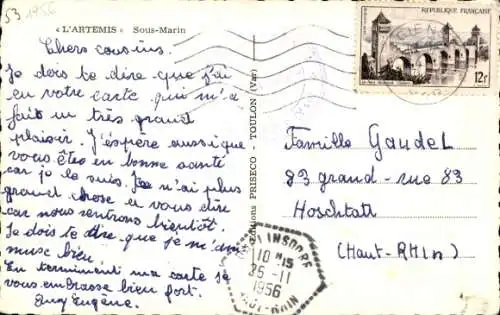 53 1956
« L'ARTEMIS » Sous-Marin
Chers cousins.
Je dois te dire que j'ai
eu votre carte qui m'a
fait un très grand
plaisir. J'éspère aussi que
vous êtes en bonne santé
car je le suis. Je n'ai plus
grand chose a vous dire
car nous rentrons bientôt.
Je dois te dire que je m'am
muse bien
En terminent ma carte je
vous embrasse bien fort.
Eugène.
Editions PRISECO - TOULON (Var)
REPUBLIQUE FRANÇAISE
12F
Famille Gaudel
83 grand-rue 83
Hoschtatt
(Haut-Rhin)
10 H15
26-11
1956
HAUT-RHIN